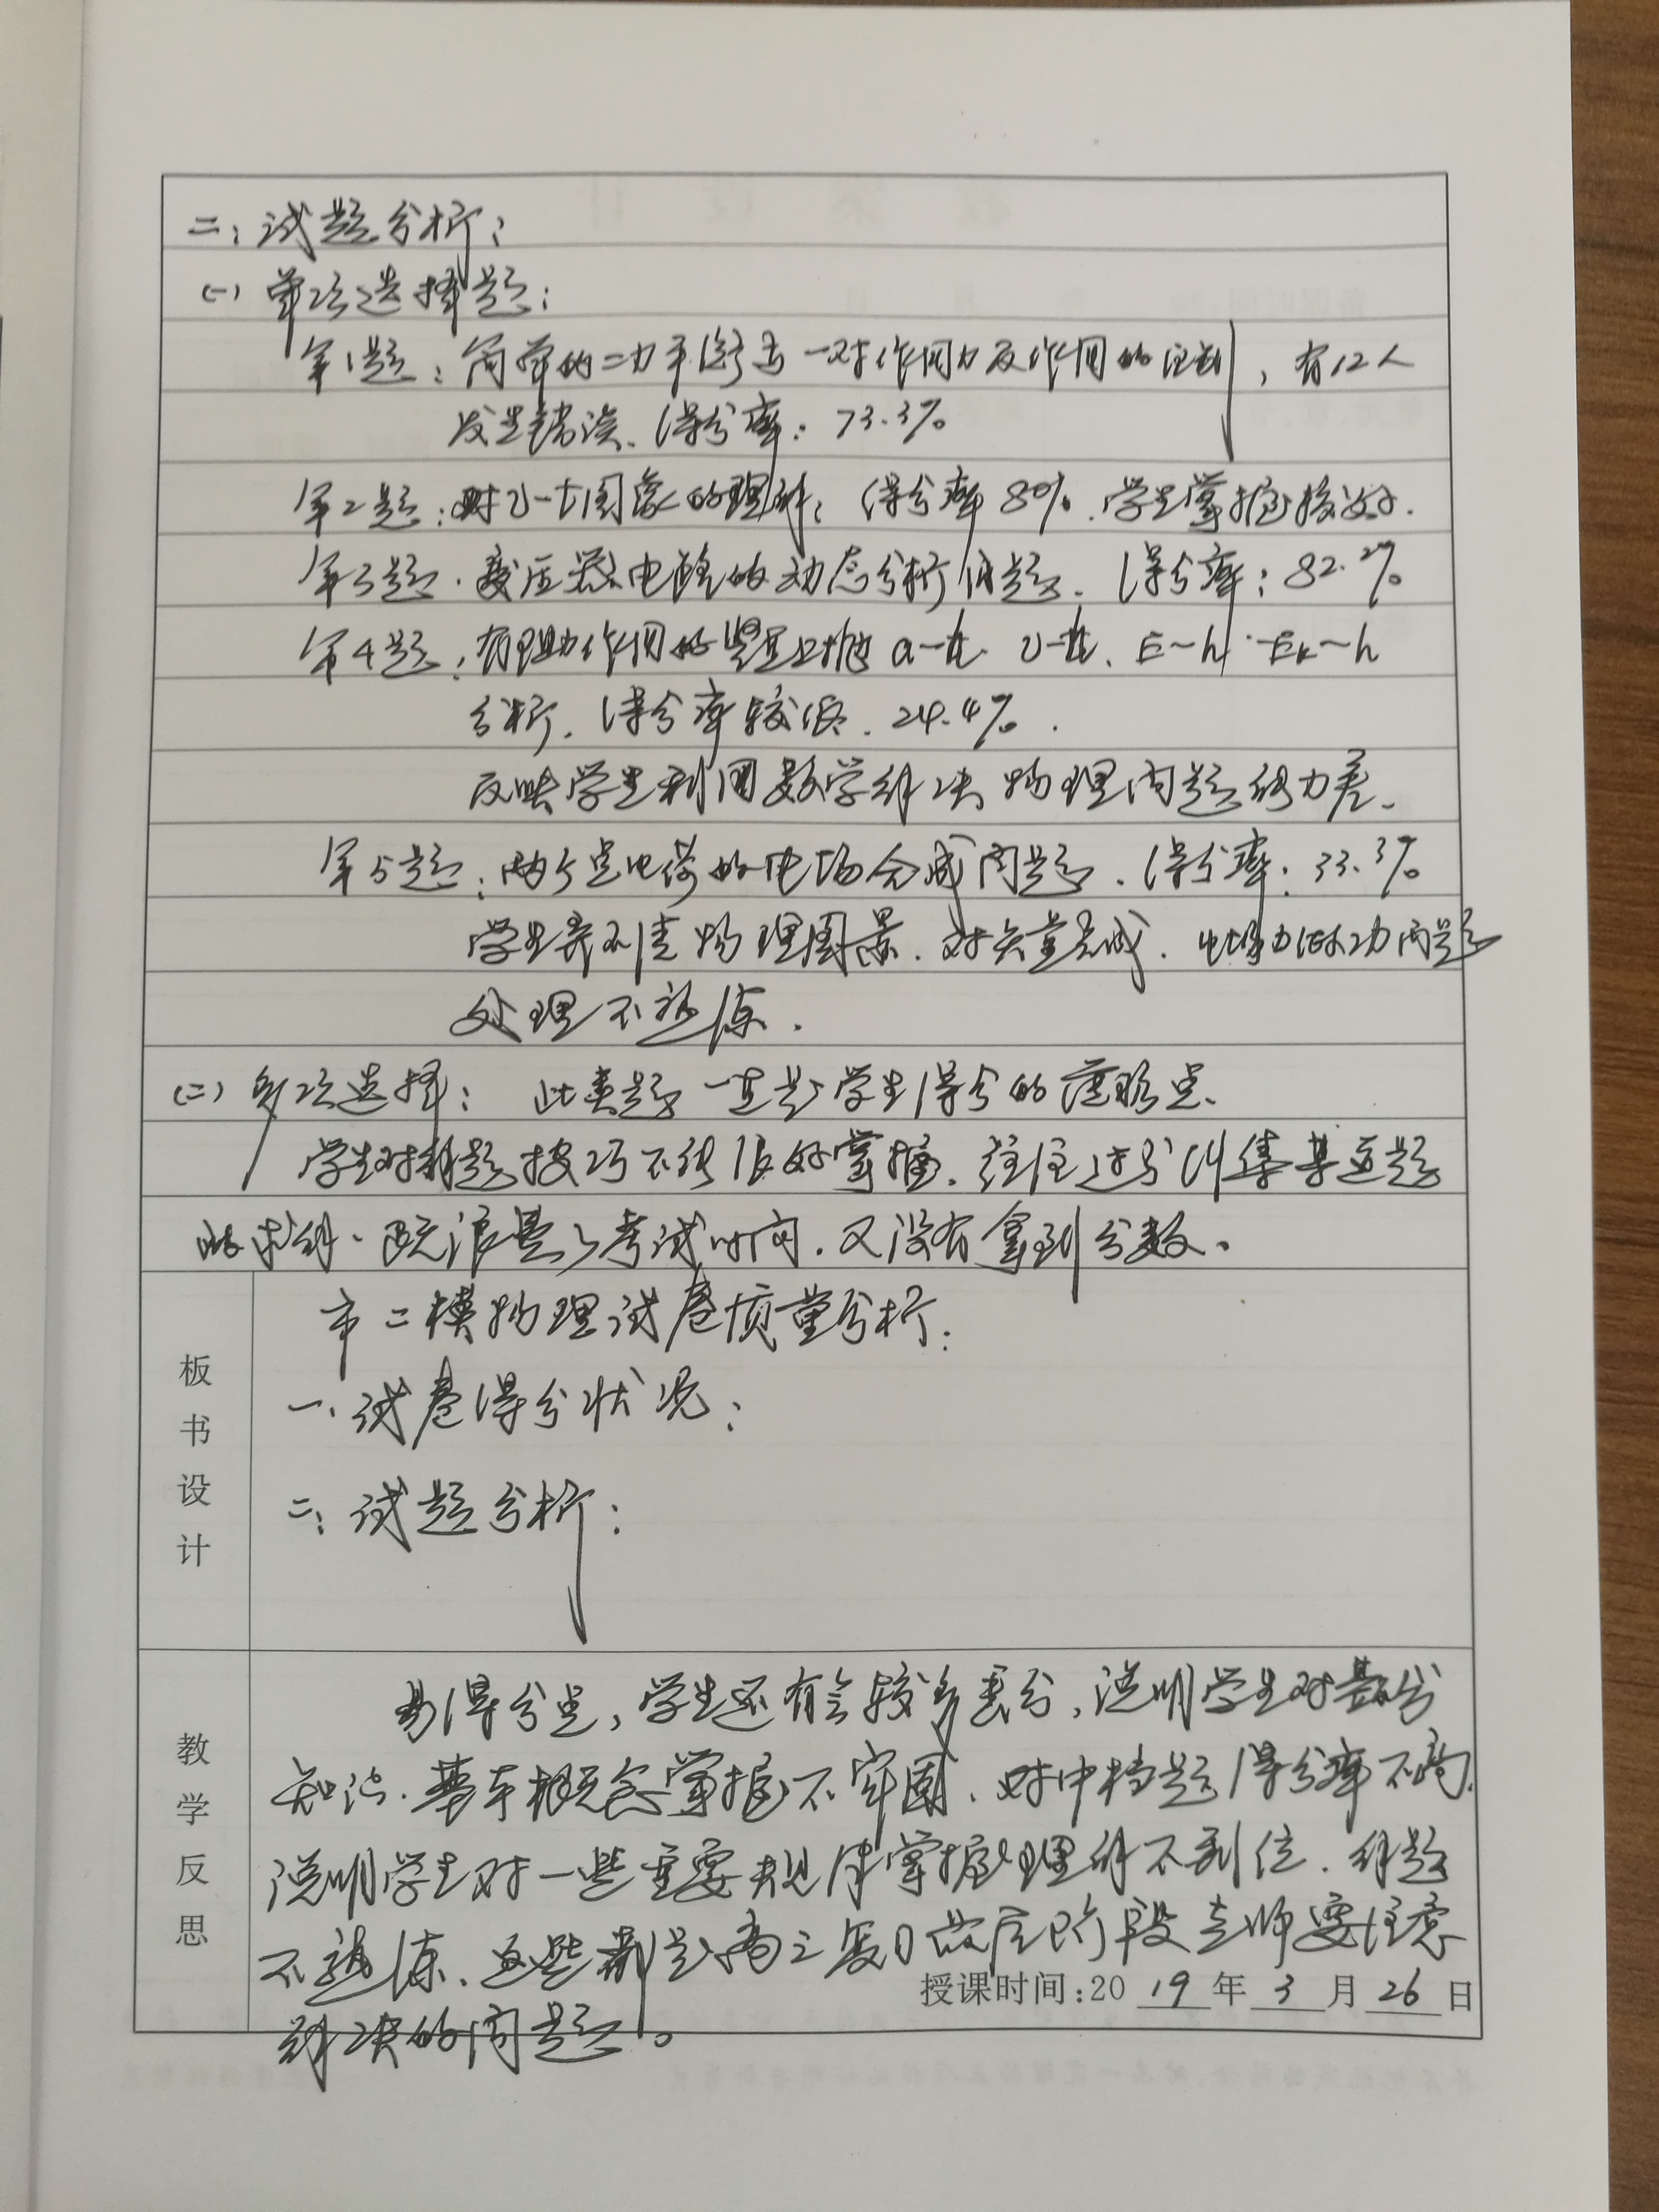 二、试题分析：
(一) 单项选择题：
第1题：简单的二力平衡与一对作用力反作用的区别，有12人
发生错误、得分率：73.3%
第2题：对v-t图象的理解；得分率80%.学生掌握较好.
第3题．变压器电路的动态分析问题．得分率：82.2%
第4题，有阻力作用的竖直上抛 a-t. v-t、E~h．Ek~h
分析．得分率较低．24.4%．
反映学生利用数学解决物理问题能力差、
第5题：两个点电荷的电场合成问题．得分率：33.3%
学生弄不清物理图景．对矢量合成．电场力做功问题
处理不熟练．
(二) 多项选择： 此类题一直是学生得分的薄弱点、
学生对解题技巧不能很好掌握．往往过分纠缠某道题
的求解．既浪费了考试时间．又没有拿到分数。
板书设计
市二模物理试卷质量分析：
一、试卷得分状况：
二、试题分析：
教学反思
易得分点，学生还有会较多丢分，说明学生对基础
知识．基本概念掌握不牢固．对中档题得分率不高.
说明学生对一些重要规律掌握理解不到位．解题
不熟练．这些都是高三复习最后阶段老师要注意
解决的问题。
授课时间：20 19 年 3 月 26 日